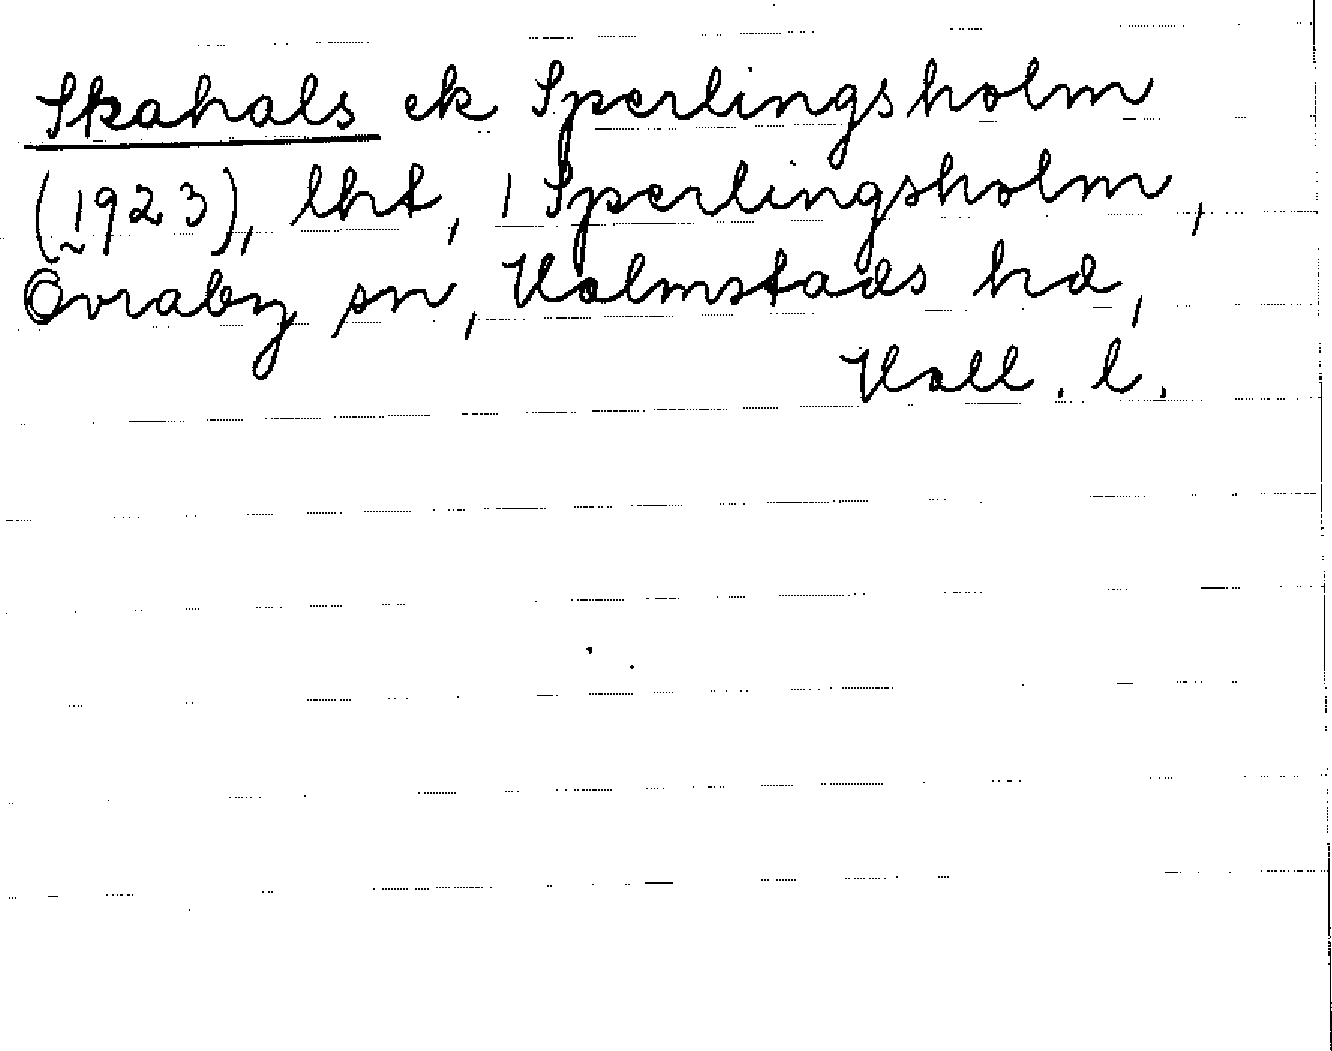 Skahals ek Sperlingsholm
(1923), lht, 1 Sperlingsholm,
Övraby sn, Halmstads hd,
Hall. l.